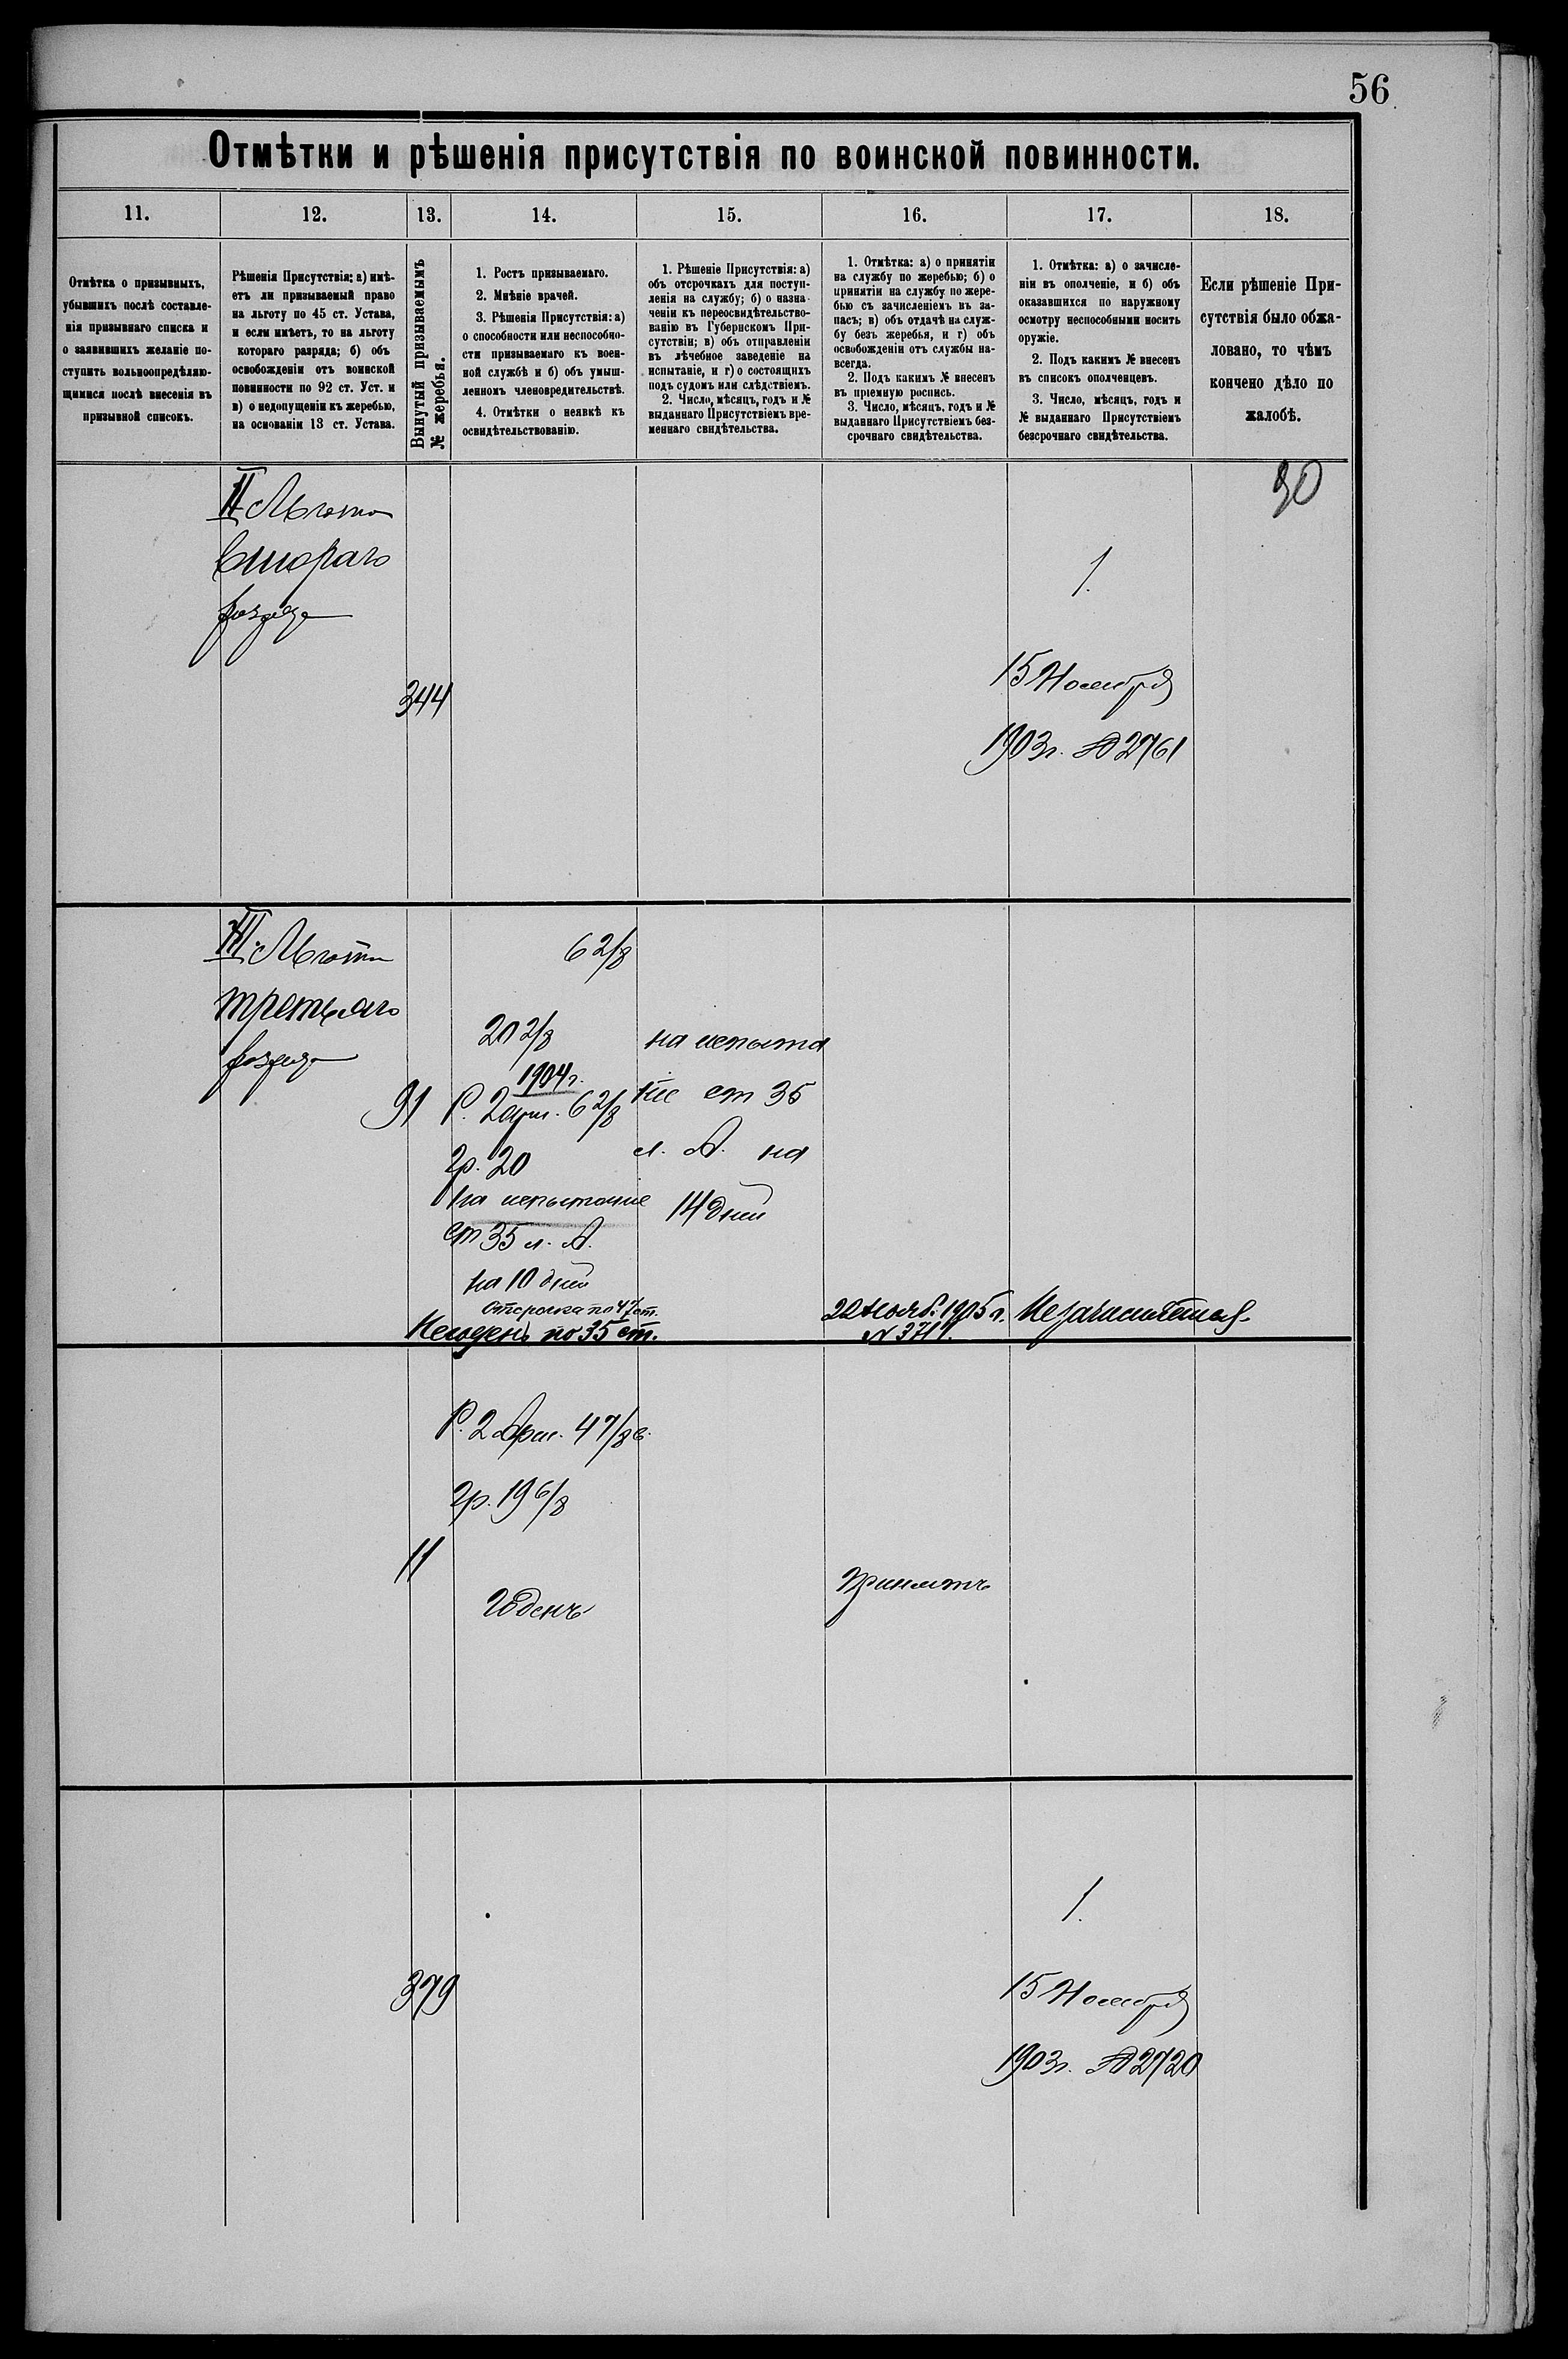 56
Отмѣтки и рѣшенія присутствія по воинской повинности.
11.
12.
13.
14.
15.
16.
17.
18.
Отмѣтка о призывныхъ,
убывшихъ послѣ составле-
нія призывнаго списка и
о заявившихъ желаніе по-
ступить вольноопредѣляю-
щимися послѣ внесенія въ
призывной списокъ.
Рѣшенія Присутствія: а) имѣ-
етъ ли призываемый право
на льготу по 45 ст. Устава,
и если имѣетъ, то на льготу
котораго разряда; б) объ
освобожденіи отъ воинской
повинности по 92 ст. Уст. и
в) о недопущеніи къ жеребью,
на основаніи 13 ст. Устава.
Вынутый призываемымъ
№ жеребья.
1. Ростъ призываемаго.
2. Мнѣніе врачей.
3. Рѣшенія Присутствія: а)
о способности или неспособно-
сти призываемаго къ воен-
ной службѣ и б) объ умыш-
ленномъ членовредительствѣ.
4. Отмѣтки о неявкѣ къ
освидѣтельствованію.
1. Рѣшеніе Присутствія: а)
объ отсрочкахъ для поступ-
ленія на службу; б) о назна-
ченіи къ переосвидѣтельство-
ванію въ Губернскомъ При-
сутствіи; в) объ отправленіи
въ лѣчебное заведеніе на
испытаніе, и г) о состоящихъ
подъ судомъ или слѣдствіемъ.
2. Число, мѣсяцъ, годъ и №
выданнаго Присутствіемъ вре-
меннаго свидѣтельства.
1. Отмѣтка: а) о принятіи
на службу по жеребью; б) о
принятіи на службу по жере-
бью съ зачисленіемъ въ за-
пасъ; в) объ отдачѣ на служ-
бу безъ жеребья, и г) объ
освобожденіи отъ службы на-
всегда.
2. Подъ какимъ № внесенъ
въ пріемную роспись.
3. Число, мѣсяцъ, годъ и №
выданнаго Присутствіемъ без-
срочнаго свидѣтельства.
1. Отмѣтка: а) о зачисле-
ніи въ ополченіе, и б) объ
оказавшихся по наружному
осмотру неспособными носить
оружіе.
2. Подъ какимъ № внесенъ
въ списокъ ополченцевъ.
3. Число, мѣсяцъ, годъ и
№ выданнаго Присутствіемъ
безсрочнаго свидѣтельства.
Если рѣшеніе При-
сутствія было обжа-
ловано, то чѣмъ
кончено дѣло по
жалобѣ.
II Льгота
Втораго
разряда
344
1.
15 Ноября
1903г. № 2761
III. Льгота
третьяго
разряда
91
6 2/8
20 2/8
1904г.
Р. 2 арш. 6 2/8
гр. 20
на испытаніе
ст 35 л. А.
на 10 дней
отсрочка по 47 ст.
Негоденъ по 35 ст.
на испыта
ніе ст 35
л. А. на
14 дней
22 Нояб. 1905 г.
N 3711.
11
Р. 2 Арш. 4 7/8 в.
гр. 19 6/8
Годенъ
принятъ
379
1.
15 Ноября
1903г. № 2720